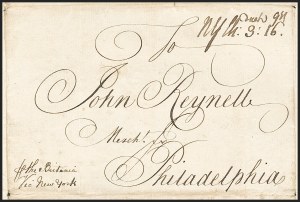 NYk: 3:16.
To
John Reynell
Merch.t In
Philadelphia
⅌ the Britania
Via New York